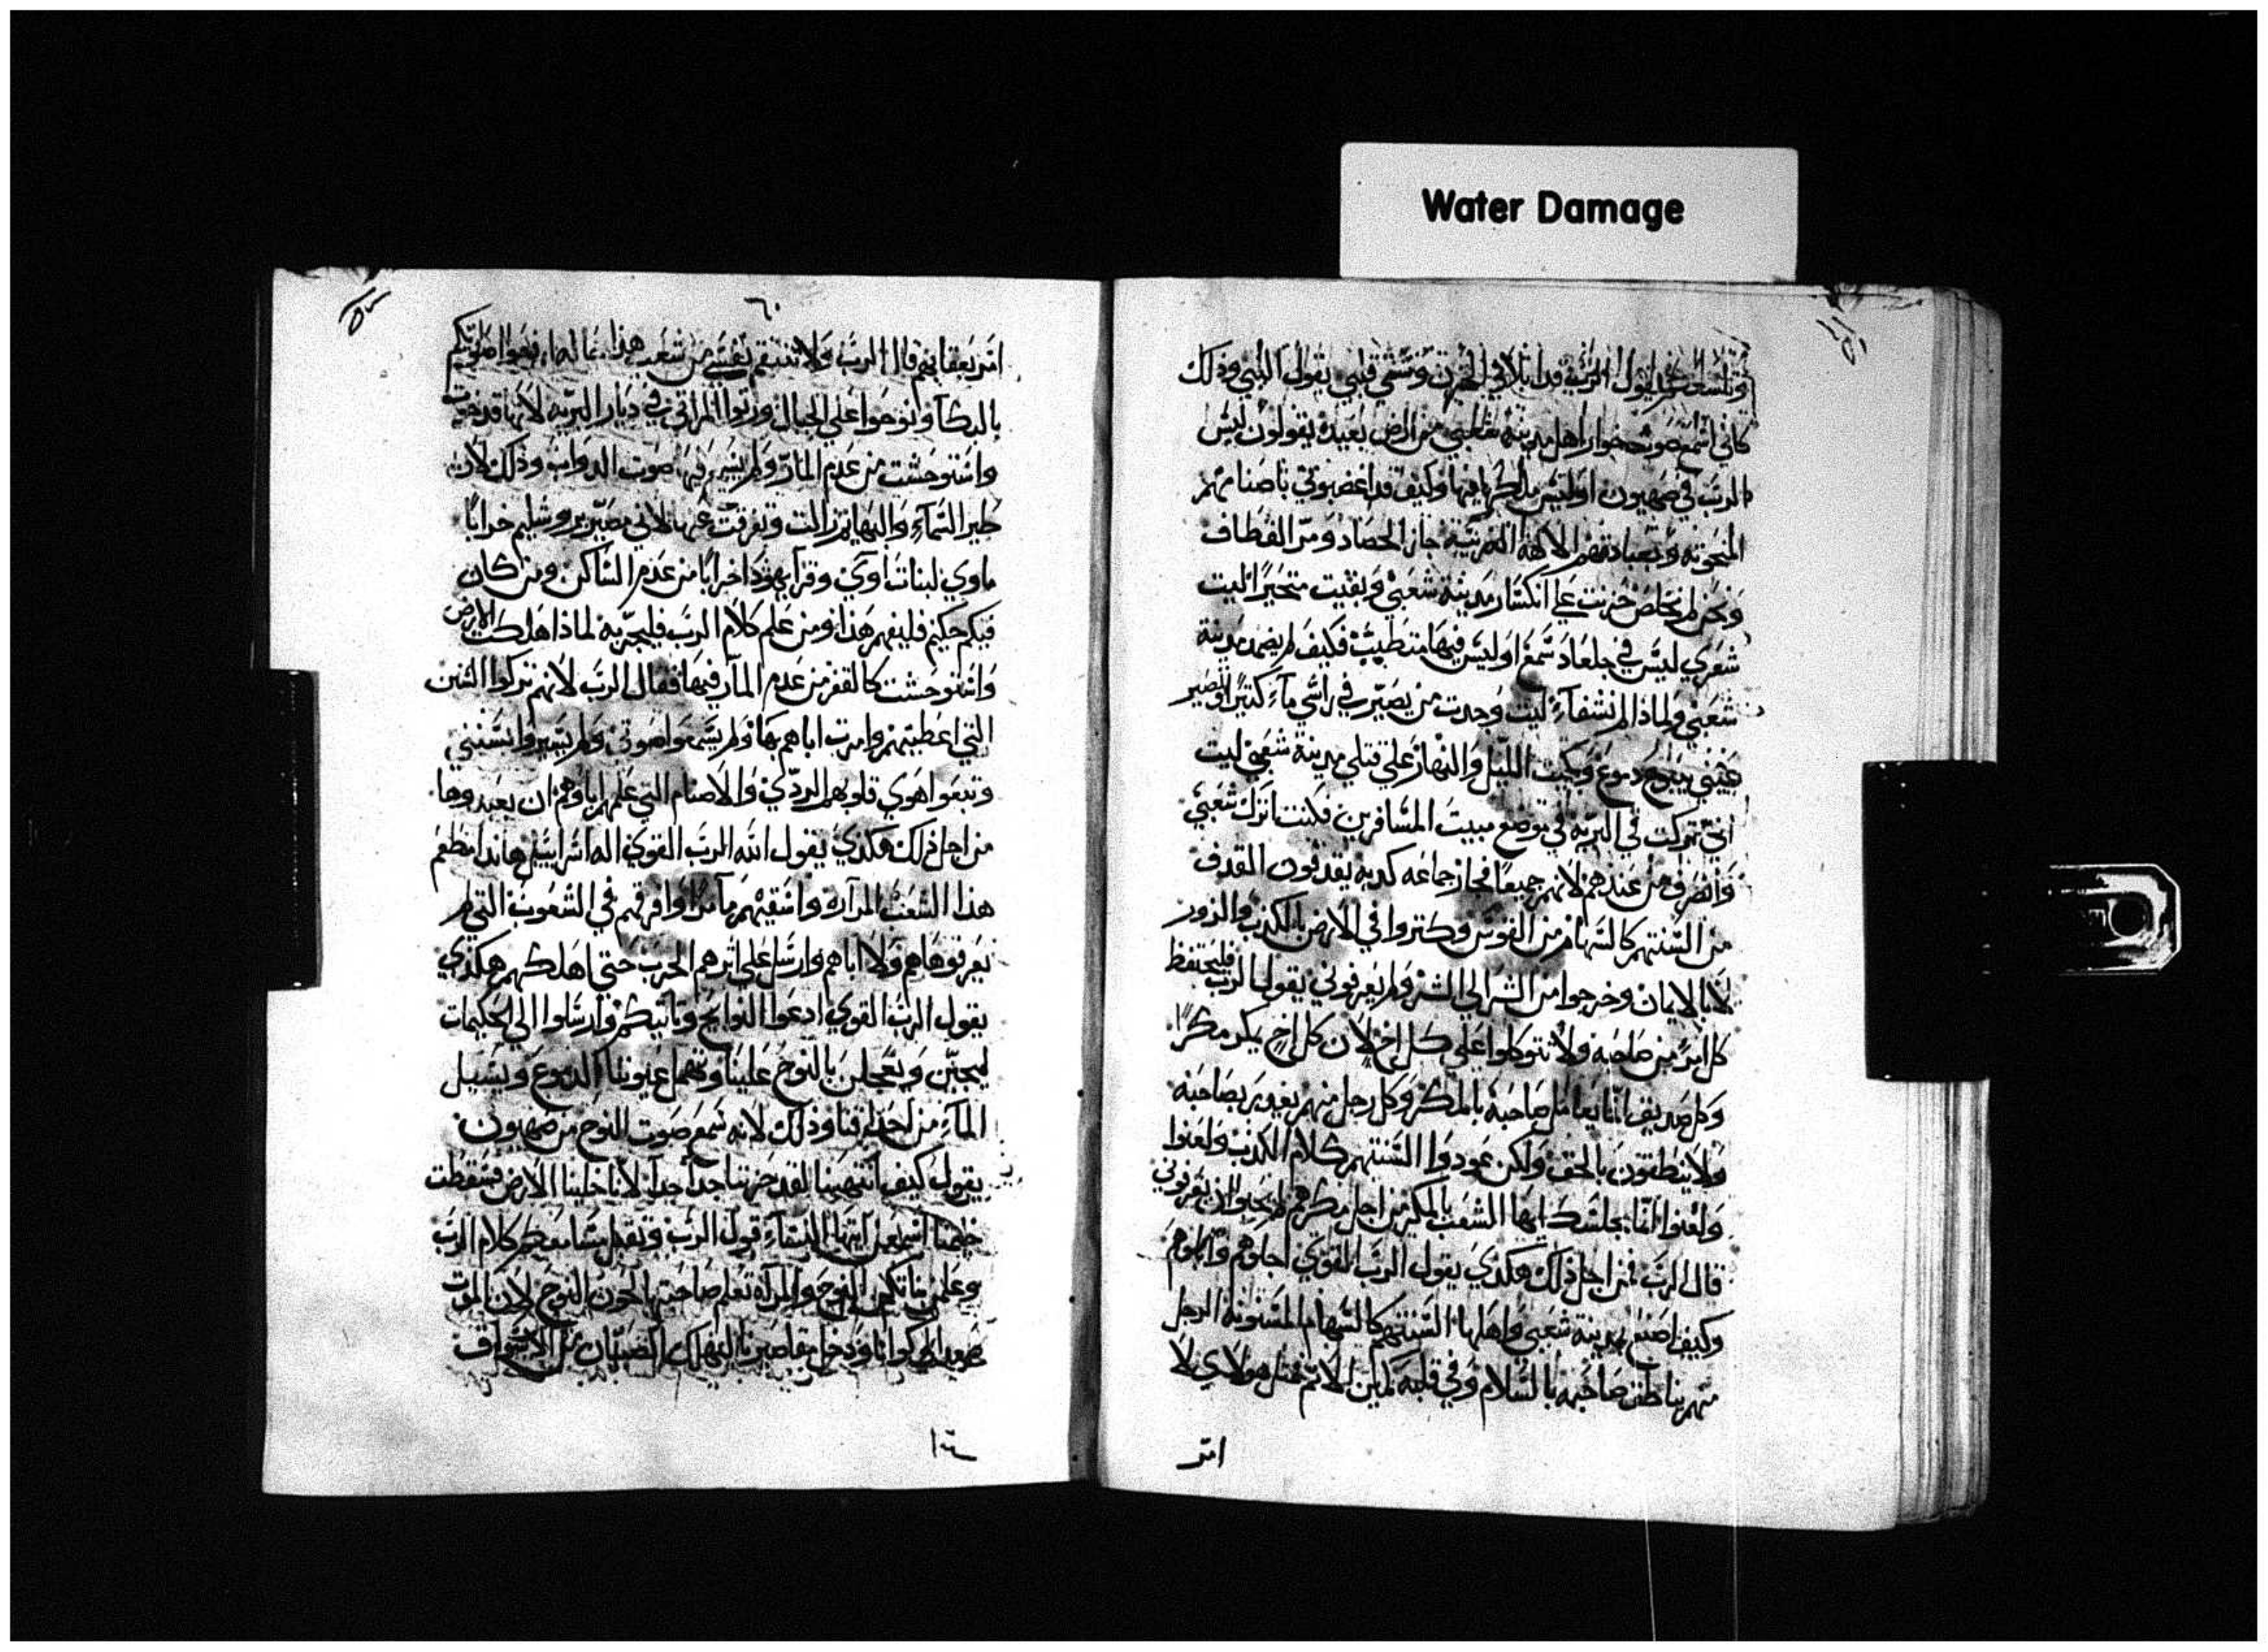 Water Damage
يقول الرب قد ابتلاني الحزن وشقي قلبي يقول النبي وذلك
كاني اسمع صوت خوار اهل مدينة شعبي من ارض بعيدة يقولون ليس
الرب في صهيون او ليس ملكها فيها وكيف قد اغضبوني باصنامهم
المنحوته وبعبادتهم الالهة الغريبة جاز الحصاد ومر القطاف
ونحن لم نخلص حزنت علي انكسار مدينة شعبي وبقيت متحيرا ليت
شعري ليس في جلعاد شمع او ليس فيها متطبب فكيف لم يضمد مدينة
شعبي ولماذا لم تشفا ليت وجدت من يصير في راسي ماء كثيرا وتصير
عيني ينبوع دموع وبكيت الليل والنهار علي قتلي مدينة شعبي ليت
اني تركت في البريه في موضع مبيت المسافرين فكنت اترك شعبي
وانصرف من عندهم لانهم جميعا فجار جماعه كذبه يقدفون القدف
من السنتهم كالسهام من القوس وكتروا في الارض بالكذب والزور
لا بالايمان وخرجوا من الشر الي الشر ولم يعرفوني يقول الرب فليحتفظ
كل امر من صاحبه ولا تتوكلوا علي كل اخ لان كل اخ يمكر مكرا
وكل صديق انما يعامل صاحبه بالمكر وكل رجل منهم يغدر بصاحبه
ولا ينطقون بالحق ولكن عودوا السنتهم كلام الكذب ولغبوا
ولغبوا انما مجلسك ايها الشعب بالمكر من اجل مكرهم لم يحبوا ان يعرفوني
قال الرب فمن اجل ذلك هكذي يقول الرب القوي اجلوهم وابلوهم
وكيف اصنع بمدينة شعبي واهلها السنتهم كالسهام المسنونة الرجل
منهم يناطق صاحبه بالسلام وفي قلبه كماين الاثم فمثل هولاي لا
امر
٦٠
امر بعقابهم قال الرب ولا تنتقم نفسي من شعب هذا فعاله ارفعوا صوتكم
بالبكا ونوحوا علي الجبال ورنوا المراثي في ديار البريه لانها قد خربت
واستوحشت من عدم المار ولم يسمع فيها صوت الدواب وذلك لان
طير السماء والبهايم زالت وتفرقت عنها لاني مصير يروشليم خرابا
ماوي لبنات اوي وقرا يهوذا خرابا من عدم الساكن ومن كان
فيكم حكيم فليفهم هذا ومن علم كلام الرب فليخبر به لماذا هلكت الارض
واستوحشت كالقفر من عدم المار فيها فقال الرب لانهم تركوا السنن
التي اعطيتهم وامرت اباهم بها ولم يسمعوا صوتي ولم يسيروا بسنني
وتبعوا هوي قلوبهم الردي والاصنام التي علمهم اباوهم ان يعبدوها
من اجل ذلك هكذي يقول الله الرب القوي اله اسراييل هانذا مطعم
هذا الشعب المرارة واسقيهم ماء مرا وافرقهم في الشعوب التي لم
يعرفوها هم ولا اباهم وارسل علي اثرهم الحرب حتي اهلكهم هكذي
يقول الرب القوي ادعوا النوايح وياتينكم وارسلوا الي الحكيمات
ليجين ويعجلن بالنوح علينا وتهمل عيوننا الدموع ويسيل
الماء من احداقنا وذلك لانه سمع صوت النوح من صهيون
يقول كيف انتهبنا لقد خزينا جدا جدا لانا خلينا الارض فسقطت
خيمنا اسمعن ايتها النساء قول الرب وتقبل مسامعكم كلام الرب
وعلمن بناتكن النوح والمراة تعلم صاحبتها الحزن النوح لان الموت
صعد الي كوانا ودخل مقاصيرنا ليهلك الصبيان من الاسواق